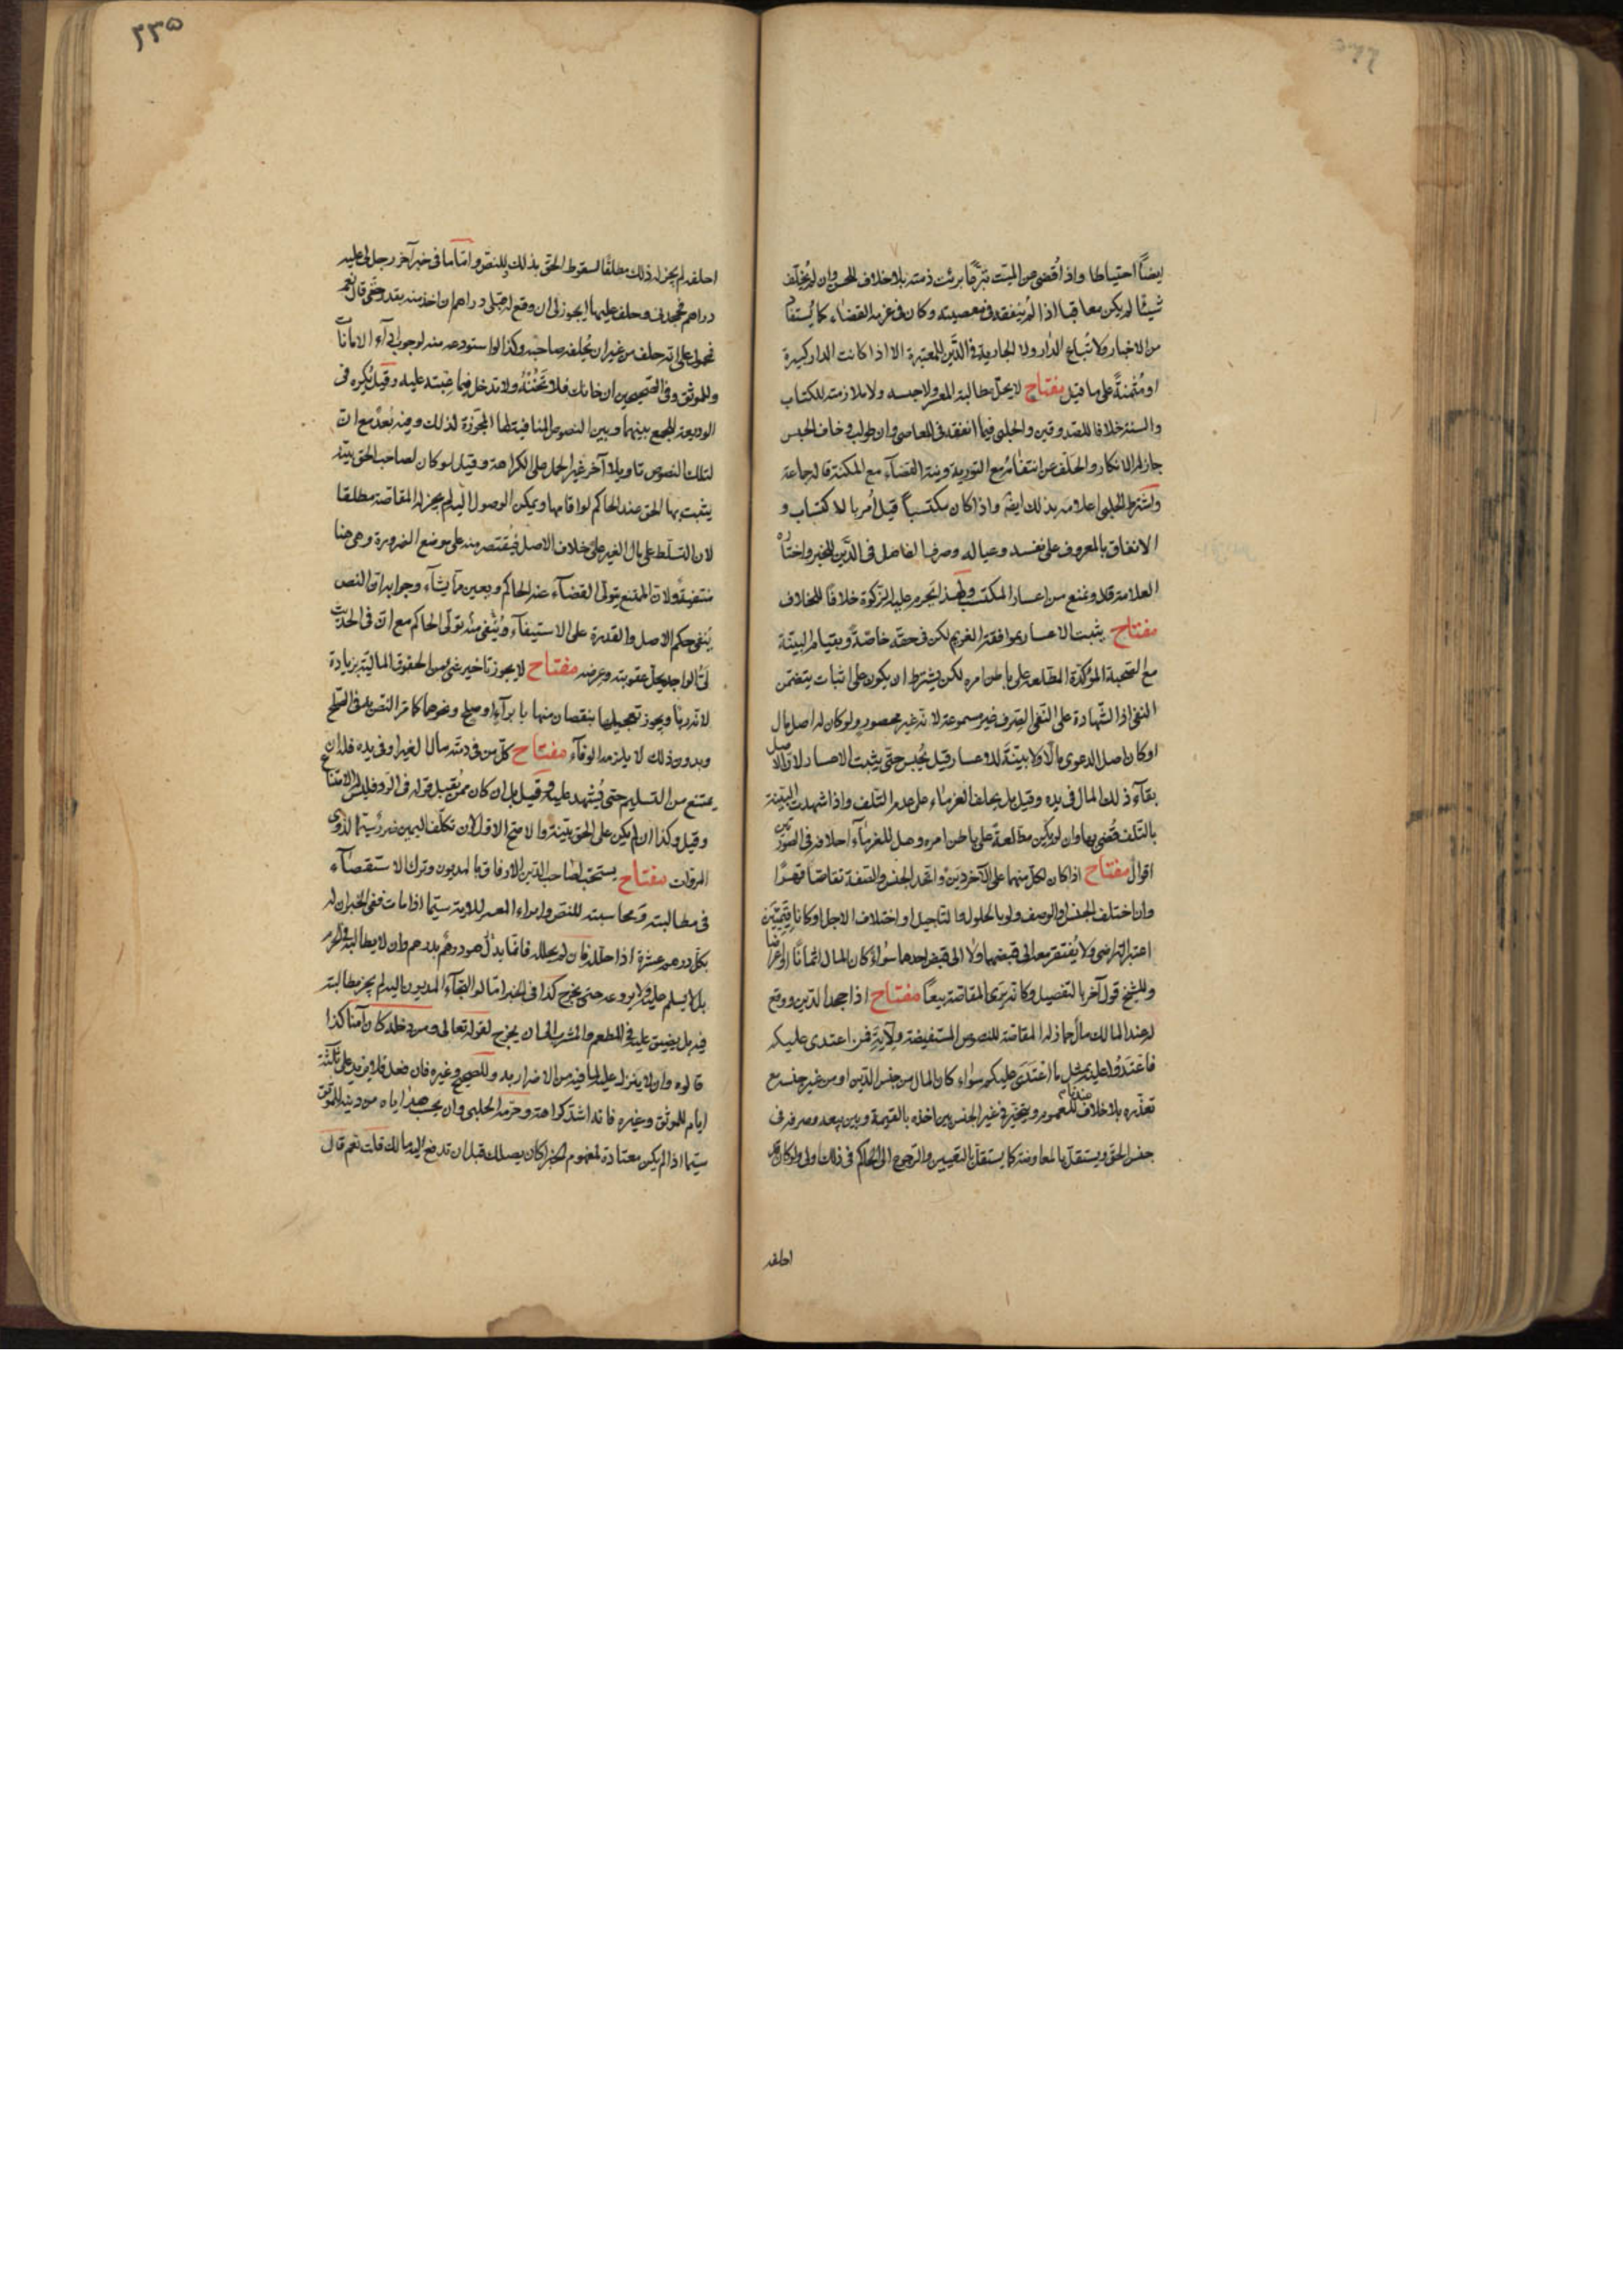 ايضاً احتياطا واذا قُضى عن الميت تبرّعاً برئت ذمته بلا خلاف للحسن وان لم يُخلّف
شيئًا لم يكن معاقبا اذا لم يُنفقه فى معصيته وكان فى عزمه القضاء كما يُستفاد
من الاخبار ولا تُباع الدّار ولا الجارية فى الدَّين للمعتبرة الا اذا كانت الدار كبيرة
او مُثمنةً على ما قيل مفتاح لا يحلّ مطالبة المعسر ولا حبسه ولا ملازمته للكتاب
والسنة خلافا للصدوقين والحلبى فيما انفقه فى المعاصى وان طولب وخاف الحبس
جاز له الانكار والحلف عن انتفائه مع التورية ونية القضآء مع المكنة قاله جماعة
واشترط الحلبى اعلامه بذلك ايضً واذا كان مكتسباً قيل أُمر بالاكتساب و
الانفاق بالمعروف على نفسه وعياله وصرف الفاضل فى الدَّين للخبر واختاره
العلامة قده ومنع من اعسار المكتسب ولهذا تحرم عليه الزكوة خلافًا للخلاف
مفتاح يثبت الاعسار بموافقة الغريم لكن فى حقه خاصّة وبقيام البيّنة
مع الصّحبة المؤكّدة المطّلعة على باطن امره لكن يشترط ان يكون على اثبات يتضمن
النفى اذا الشّهادة على النّفى الصّرف غير مسموعة لانه غير محصور ولو كان له اصل مال
او كان اصل الدعوى مالا ولا بيّنة للاعسار قيل يُحبس حتّى يثبت الاعسار لان الاصل
بقآء ذلك المال فى يده وقيل بل يحلف الغرماء على عدم التّلف واذا شهدت البيّنة
بالتّلف قُضى بها وان لم يكن مطّلعة على باطن امره وهل للغرمآء احلافه فى الصورتين
اقوال مفتاح اذا كان لكلّ منهما على الآخر دَين واتّحد الجنس والصّفة تقاصّا قهرًا
وان اختلف الجنس او الوصف ولو بالحلول والتاجيل او اختلاف الاجل او كانا قيميّين
اعتبر التراضى ولا يُفتقر معه الى قبضهما ولا الى قبض احدهما سواءً كان المال اثمانًا او عرضا
وللشيخ قول آخر بالتفصيل وكانه يرى المقاصّة بيعاً مفتاح اذا جحد الدَين ووقع
له عند المالك مال جاز له المقاصّة للنصوص المستفيضة ولآية فمن اعتدى عليكم
فاعتدوا عليه بمثل ما اعتدى عليكم سواء كان المال من جنس الدّين او من غير جنسه مع
تعذّره بلا خلاف عندنا للعموم ويتخيّر فى غير الجنس بين اخذه بالقيمة وبين بيعه وصرفه فى
جنس الحقّ ويستقلّ بالمعاوضة كما يستقلّ بالتعيين والرّجوع الى الحاكم فى ذلك اولى ولو كان قد
احلفه
٢٣٥
احلفه لم يجز له ذلك مطلقًا لسقوط الحقّ بذلك وللنصّ وامّا ما فى خبر آخر رجل لى عليه
دراهم فجحدنى وحلف عليها ايجوز لى ان وقع له قبلى دراهم ان اخذ منه بقدر حقّى قال نعم
فحمول على انه حلف من غير ان يُحلفه صاحبه وكذا لو استودعه منه لوجوب ادآء الامانات
وللموثق وفى الصحيحين ان خانك فلا تخُنْهُ ولا تدخل فيما عبته عليه وقيل يُكره فى
الوديعة للجمع بينهما وبين النصوص المنافية لها المجوّزة لذلك وفيه بُعدٌ مع انّ
لتلك النصوص تاويلا آخر غير الحمل على الكراهة وقيل لو كان لصاحب الحق بيّنة
يثبت بها الحق عند الحاكم لو اقامها ويمكن الوصول اليه لم يجز له المقاصّة مطلقا
لان التسلّط على مال الغير على خلاف الاصل فيُقتصر منه على موضع الضرورة وهى هنا
منتفية ولانّ الممتنع يتولى القضآء عنه الحاكم ويعين ما يشآء وجوابه انّ النص
يُنفى حكم الاصل والقدرة على الاستيفآء وُيُنفى منه تولّى الحاكم مع انّ فى الحديث
لَىُّ الواجد يحلّ عقوبته وعرضه مفتاح لا يجوز تاخير شئ من الحقوق الماليّة بزيادة
لانه ربا ويجوز تعجيلها بنقصان منها بابرآء او صلح ونحوهما كما مرّ النص به فى الصّلح
وبدون ذلك لا يلزمه الوفآء مفتاح كلّ من فى ذمّته مال لغيره او فى يده فله ان
يمتنع من التسليم حتى يُشهد عليه وقيل بل ان كان ممن يُقبل قوله فى الرد فليس له الامتناع
وقيل وكذا ان لم يكن على الحق بيّنة والاصحّ الاول لان تكلّف اليمين ضرر سيّما لذوى
المروّات مفتاح يستحب لصاحب الدّين الارفاق بالمديون وترك الاستقصآء
فى مطالبته ومحاسبته للنصّ وابراء المعسر للاية سيّما اذا مات ففى الخبر ان له
بكلّ درهم عشرة اذا حلله فان لم يحلله فانّما بدل درهم بدرهم وان لا يطالبه فى الحرم
بل لا يسلم عليه ولا يروعه حتى يخرج كذا فى الخبر امّا لو التجآء المديون اليه لم يجز مطالبته
فيه بل يضيق عليه فى المطعم والمشرب الى ان يخرج لقوله تعالى ومن دخله كان آمنا كذا
قالوه وان لا ينزل عليه لما فيه من الاضرار به وللصحيح وغيره فان فعل فلا يزيد على ثلثة
ايام للموثق وغيره فانه اشدّ كراهة وحرّمه الحلبى وان يحسب هديّته اياه من دينه للموثق
سيّما اذا لم يكن معتادة لمفهوم الخبر اكان يصلك قبل ان تدفع اليه مالك قلت نعم قال